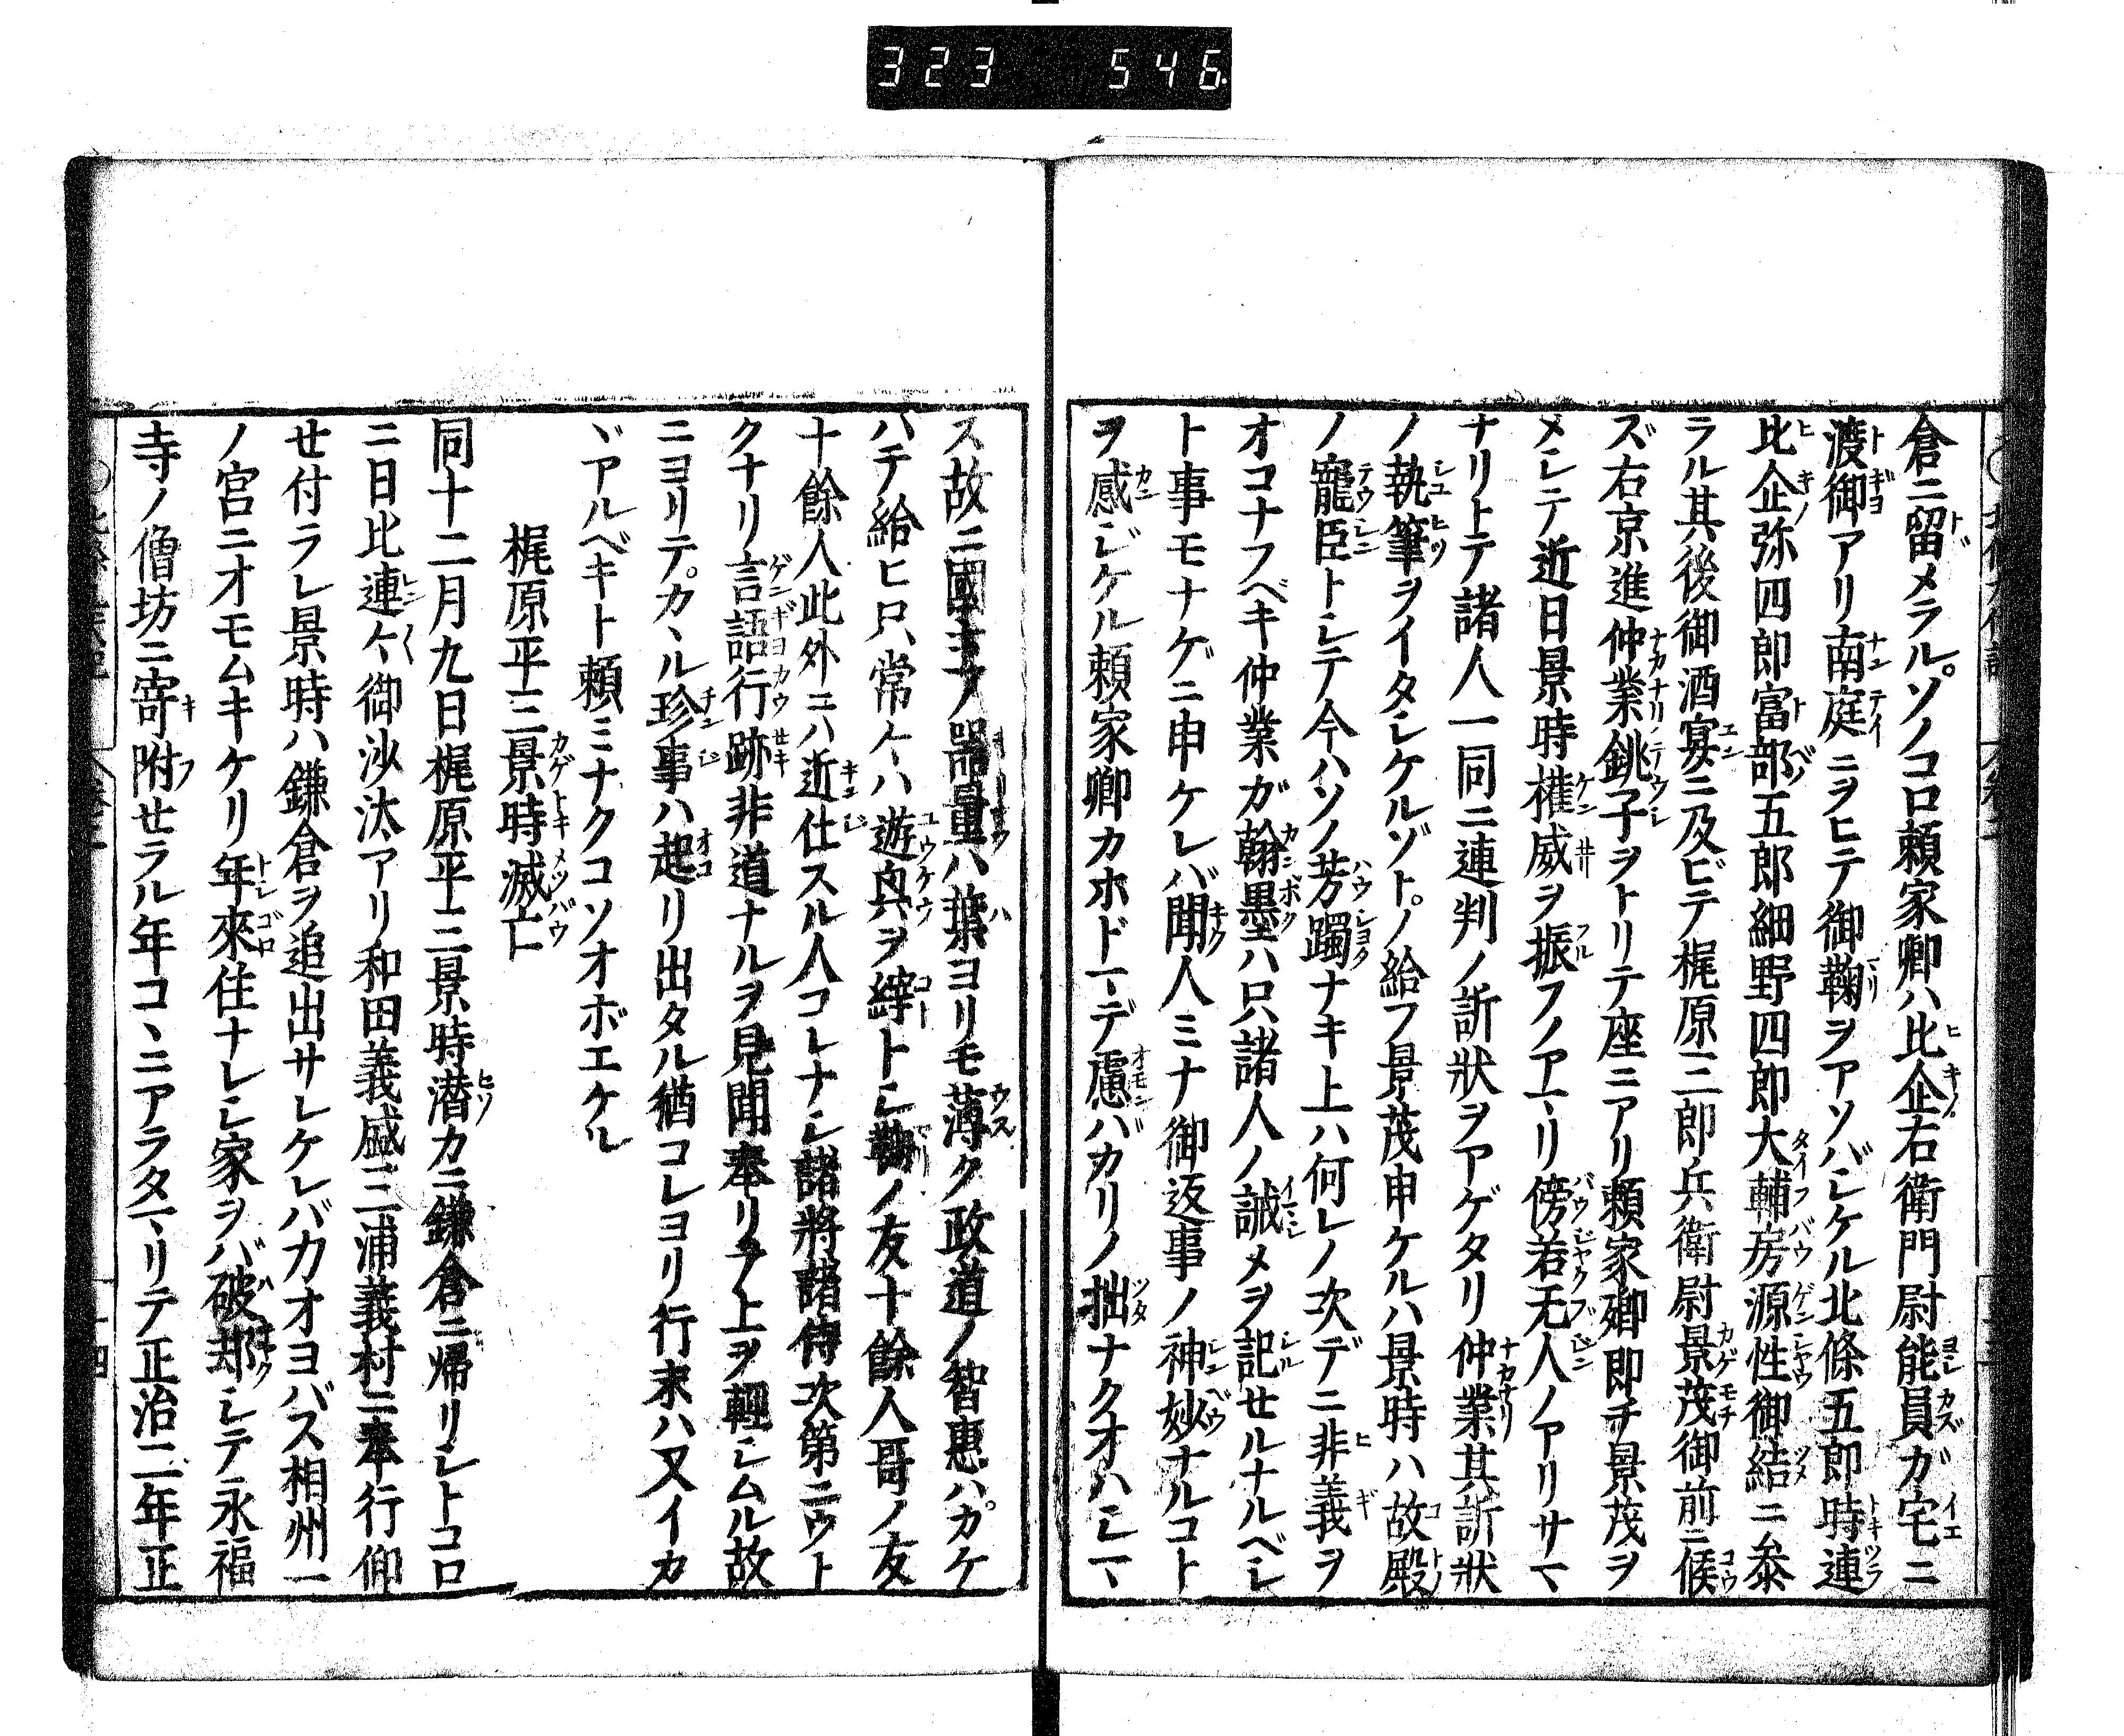 323 546
倉ニ留メラル。ソノコロ頼家卿ハ比企右衛門尉能員ガ宅ニ
渡御アリ南庭ニヲヒテ御鞠ヲアソバシケル北條五郎時連
比企弥四郎冨部五郎細野四郎大輔房源性御結ニ参
ラル其後御酒宴ニ及ビテ梶原三郎兵衛尉景茂御前ニ候
ズ右京進仲業銚子ヲトリテ座ニアリ頼家卿即チ景茂ヲ
メシテ近日景時權威ヲ振フノアマリ傍若无人ノアリサマ
ナリトテ諸人一同ニ連判ノ訴狀ヲアゲタリ仲業其訴狀
ノ執筆ヲイタシケルゾト。ノ給フ景茂申ケルハ景時ハ故殿
ノ寵臣トシテ今ハソノ芳躅ナキ上ハ何レノ次デニ非義ヲ
オコナフベキ仲業ガ翰墨ハ只諸人ノ誡メヲ記セルナルベシ
ト事モナゲニ申ケレバ聞人ミナ御返事ノ神妙ナルコト
ヲ感ジケル頼家卿カホドマデ慮バカリノ拙ナクオハシマ
ス故ニ國主ノ器量ハ葉ヨリモ薄ク政道ノ智惠ハ。カケ
ハテ給ヒ只常々ハ遊興ヲ縡トシ鞠ノ友十餘人哥ノ友
十餘人此外ニハ近仕スル人コレナシ諸將諸侍次第ニウト
クナリ言語行跡非道ナルヲ見聞奉リテノ上ヲ輕シムル故
ニヨリテ。カヽル珍事ハ起リ出タル猶コレヨリ行末ハ又イカ
ヾアルベキト頼ミナクコソオボエケル
梶原平三景時滅亡
同十二月九日梶原平三景時潜カニ鎌倉ニ帰リシトコロ
ニ日比連々御沙汰アリ和田義盛三浦義村ニ奉行仰
せ付ラレ景時ハ鎌倉ヲ追出サレケレバカオヨバス相州一
ノ宮ニオモムキケリ年來住ナレシ家ヲバ破却シテ永福
寺ノ僧坊ニ寄附せラル年コヽニアラタマリテ正治二年正